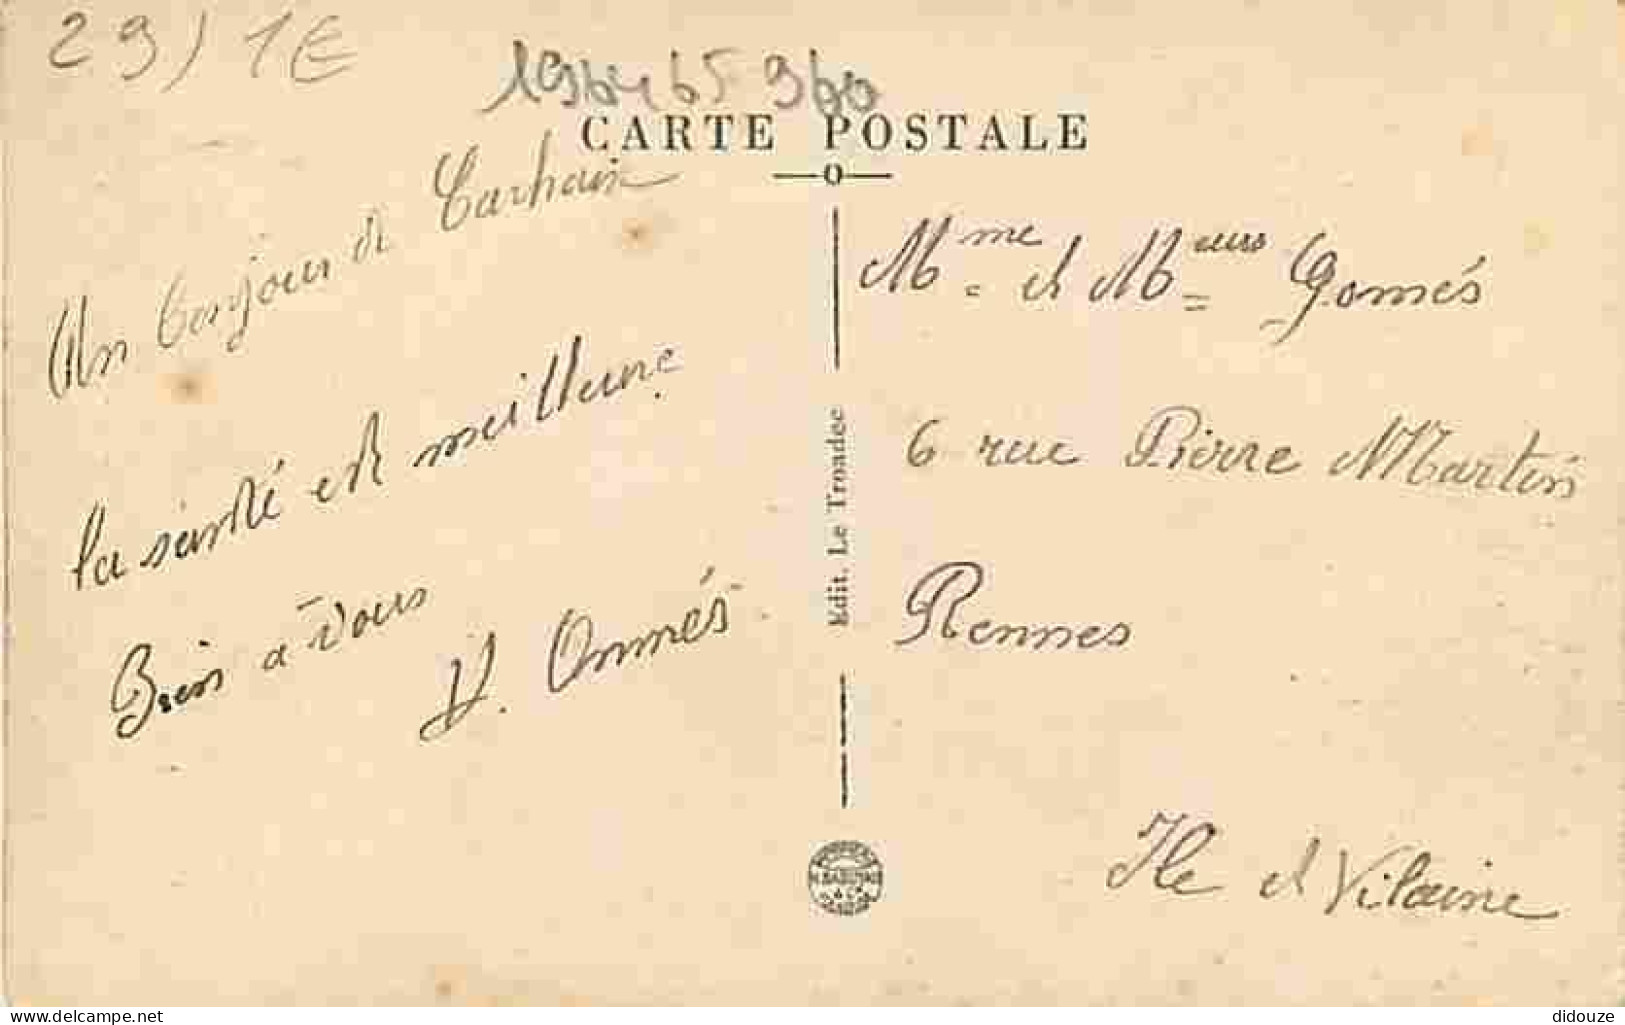 29 / 1€
1964 65 960
CARTE POSTALE
Un bonjour de Carhaix
la santé est meilleure
Bien a vous
V. Onnés
Mme et Meurs Gomés
6 rue Pierre Martin
Rennes
Ile et Vilaine
Edit. Le Troadec
www.delcampe.net
didouze